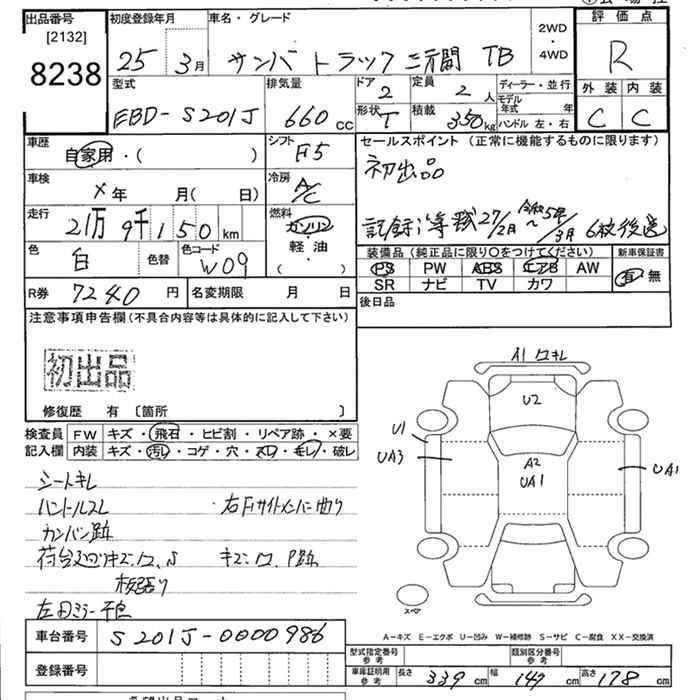 出品番号
[2132]
8238
初度登録年月
25年 3月
車名・グレード
サンバートラック 三方開 TB
2WD
・
4WD
評価点
R
型式
EBD-S201J
排気量
660 cc
ドア
2
定員
2 人
形状
T
積載
350 kg
ディーラー・並行
モデル年式 年
ハンドル 左・右
外装 内装
C C
車歴
自家用・( )
シフト
F5
セールスポイント (正常に機能するものに限ります)
初出品
車検
×年 月( 日)
冷房
A/C
走行
21万9千150km
燃料
ガソリン
・
軽・油
( ・ )
記録簿等 27/2月 ~ 令和5年/3月 6枚後送
色
白
色替
色コード
W09
装備品 (純正品に限り〇をつけてください)
PS PW ABS エアB AW
SR ナビ TV カワ
新車保証書
有 無
R券 7240 円
名変期限 月 日
後日品
注意事項申告欄 (不具合内容等は具体的に記入して下さい)
初出品
修復歴 有 〔箇所 〕
検査員
記入欄
FW キズ・飛石・ヒビ割・リペア跡・×要
内装 キズ・汚レ・コゲ・穴・スレ・キレ・破レ
シートキレ
ハンドルスレ 右Fサイドメンバー曲り
カンバン跡
板張り
A1 ワキレ
U2
U1
UA3
A2
UA1
UA1
スペア
A-キズ E-エクボ U-凹み W-補修跡 S-サビ C-腐食 XX-交換済
車台番号
S201J-0000986
登録番号
型式指定番号
参考
類別区分番号
参考
車庫証明用
参考
長さ 339 cm 幅 147 cm 高さ 178 cm